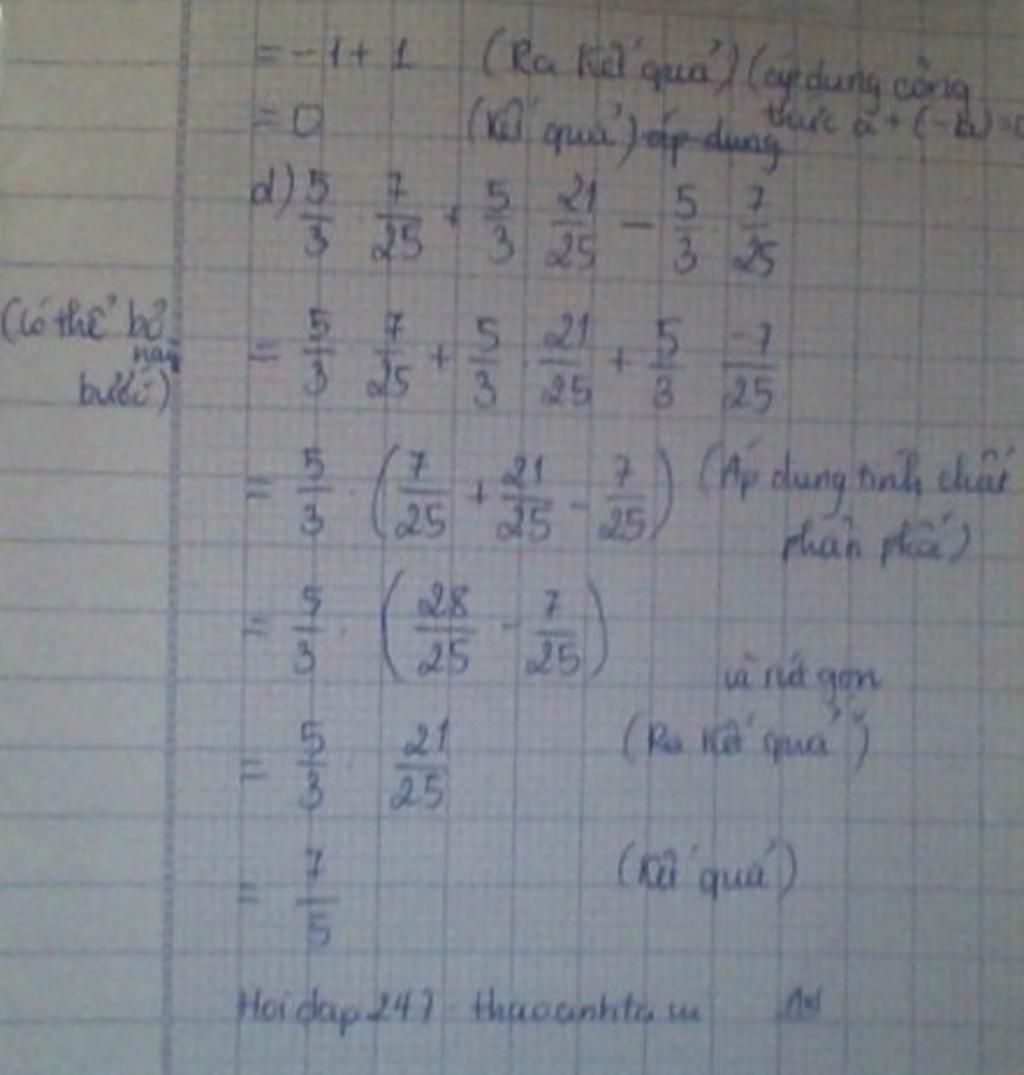 = -1 + 1 (Ra kết quả) (áp dụng công
thức a + (-a) = 0
= 0 (Kết quả) áp dụng
d) 5/3 · 7/25 + 5/3 · 21/25 - 5/3 · 7/25
(Có thể bỏ
này
bước)
= 5/3 · 7/25 + 5/3 · 21/25 + 5/3 · -7/25
= 5/3 · (7/25 + 21/25 - 7/25) (Áp dụng tính chất
phân phối)
= 5/3 · (28/25 - 7/25)
và rút gọn
= 5/3 · 21/25 (Ra kết quả)
= 7/5 (Kết quả)
Hoidap247